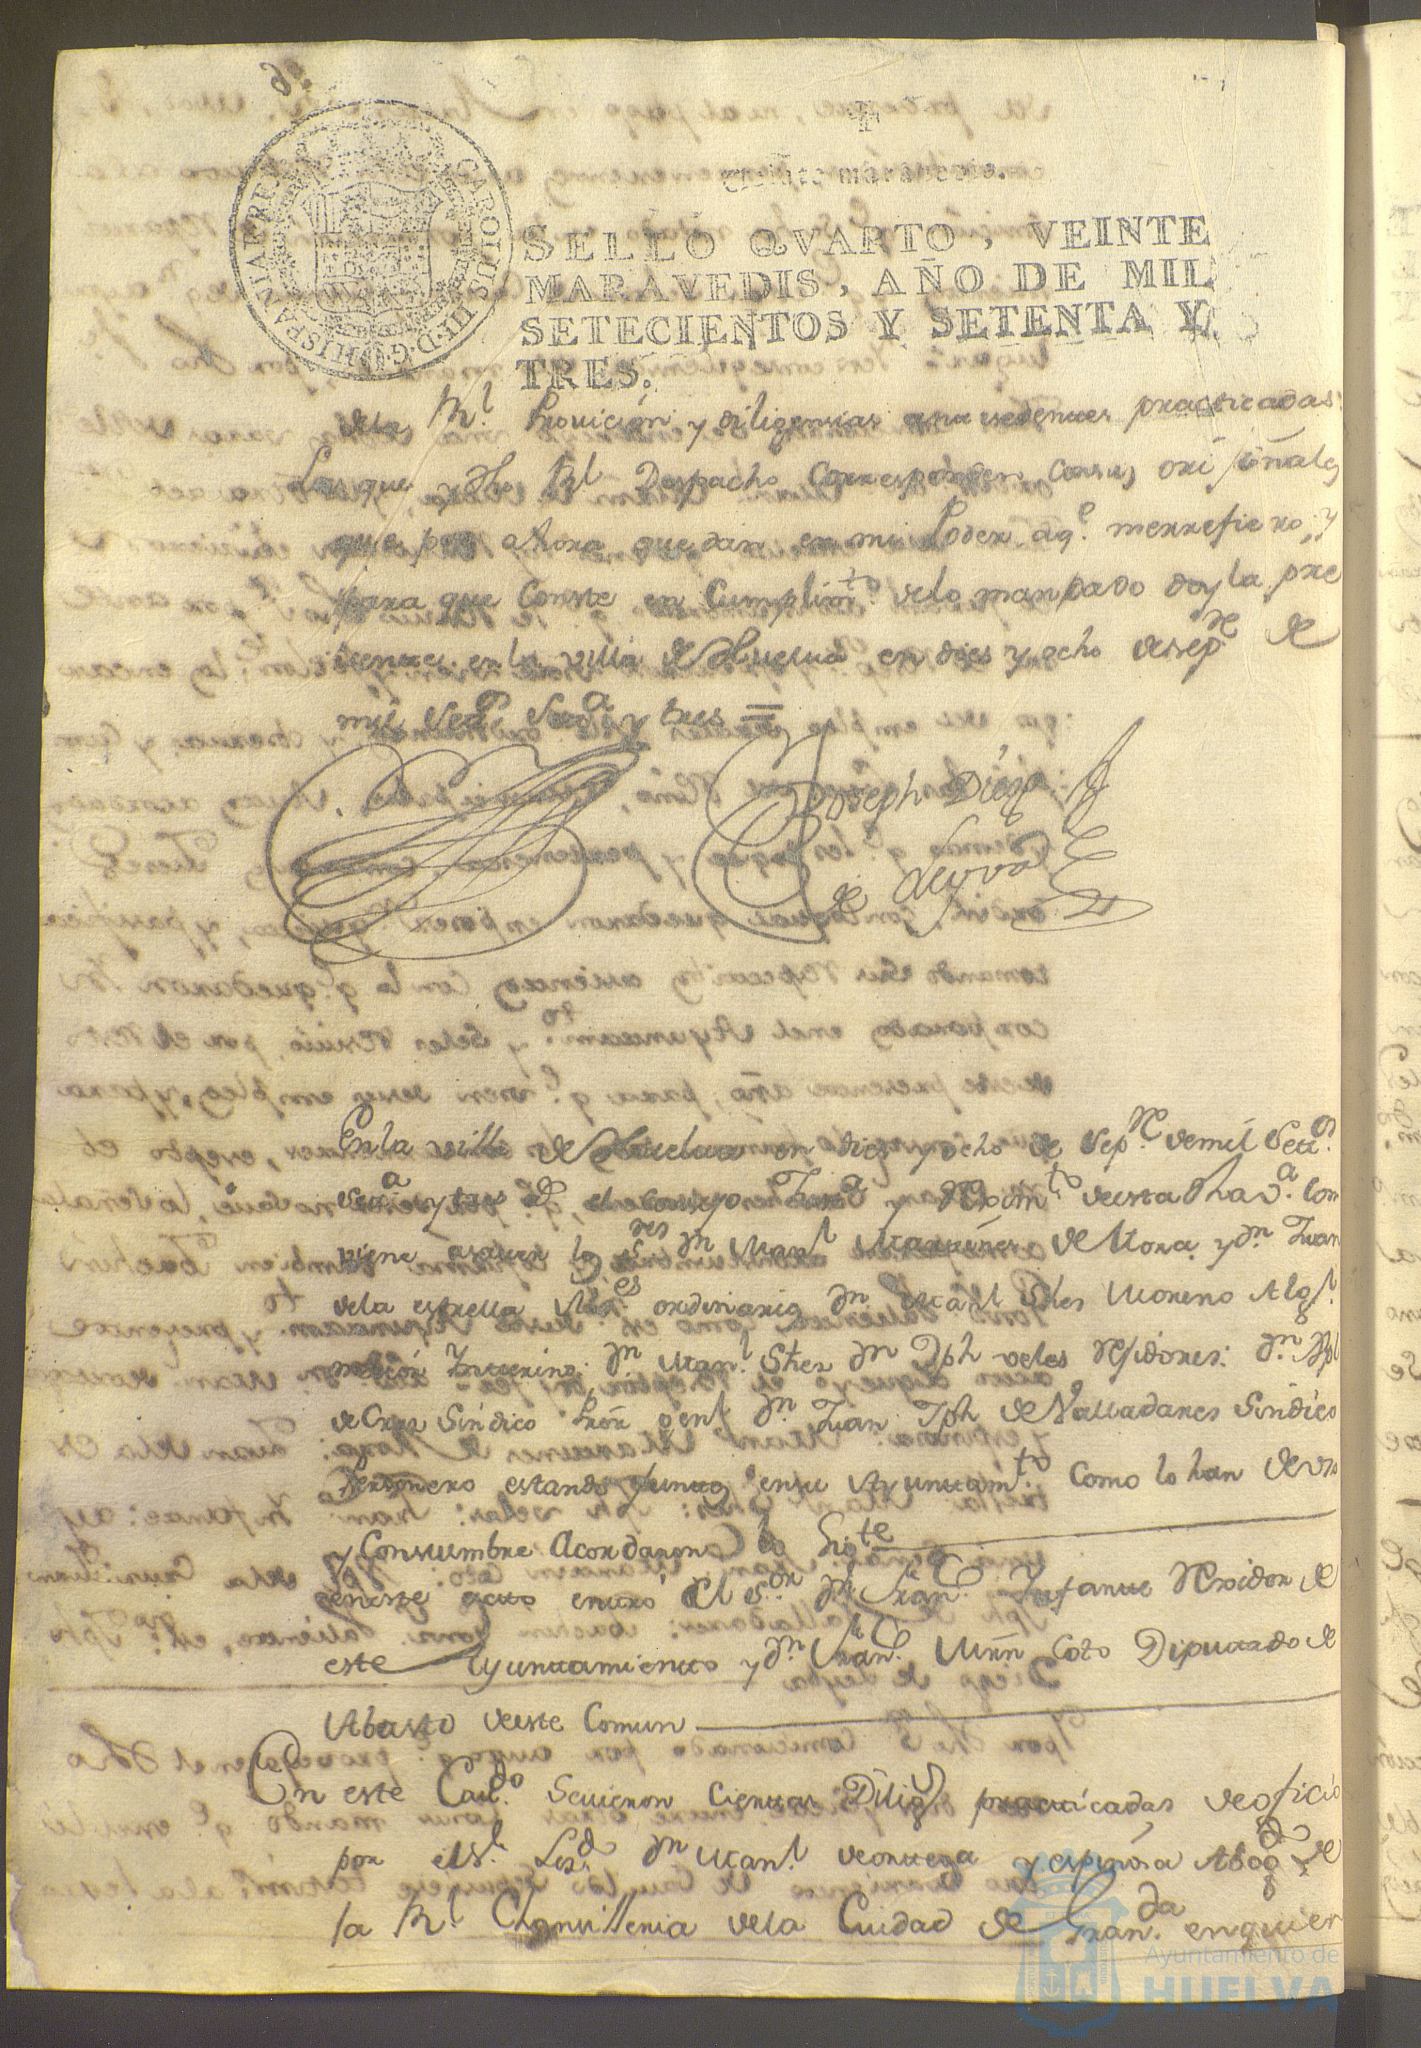 CAROLUS III D G HISPANIAR REX
Veinte maravedis.
SELLO QVARTO, VEINTE
MARAVEDIS, AÑO DE MIL
SETECIENTOS Y SETENTA Y
TRES.
dela Rl. Provición y diligensias antesedentes practicadas
Las que y dho Rl Despacho Corresponden Consus orijinales
que por ahora quedan en mi Poder aqe. merrefiero, y
para que Conste en Cumplimto. delo mandado doy la pre
sente en la villa de Huelva en dies y ocho de sepre. de
mil setos. seta. y tres =
Joseph Diego
de Leyva
En la villa de Huelva en dies y ocho de sepre. de mil setos.
seta. y tres el Consejo Justa. y Reximto. de esta dha va. Com
viene asaver los Sres Dn Manl Martines de Mora y Dn Juan
dela estrella Alces. ordinarios Dn Manl Sches Moreno Algl.
maior Ynterino; Dn Manl. Sches Dn Jph veles Rejidores: Dn
de Cruz Sindico Pror genl Dn Juan Jph de Valladares Sindico
Personero estando juntos ensu Ayuntamto. Como lo han de uso
y Constumbre Acordaron lo Sigte
en este acto entró el Sor. Dn Fran.co Ynfante Rexidor de
este Ayuntamiento y Dn Fran.co Mrn Coto Diputado de
Abasto de este Comun
En este Cavdo. Sevieron Ciertas Diligs practicadas de oficio
por el Sr. Lizdo. Dn Manl. de ortega y espinosa Abogdo. de
la Rl Chansilleria dela Ciudad de Granda. en quier
Ayuntamiento de
HUELVA